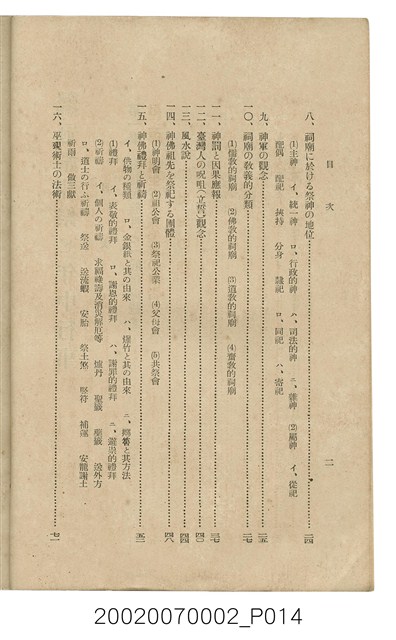 目次
二
八、祠廟に於ける祭神の地位……二四
(1)主神 イ、統一神 ロ、行政的神 ハ、司法的神 ニ、雜神 (2)屬神 イ、從祀
配偶 配祀 挾持 分身 隸祀 ロ、同祀 ハ、寄祀
九、神軍の觀念……二五
一〇、祠廟の敎義的分類……二七
(1)儒敎的祠廟 (2)佛敎的祠廟 (3)道敎的祠廟 (4)齋敎的祠廟
一一、神罰と因果應報……三七
一二、臺灣人の呪咀(立誓)觀念……四〇
一三、風水說……四四
一四、神佛祖先を祭祀する團體……四八
(1)神明會 (2)祖公會 (3)祭祀公業 (4)父母會 (5)共祭會
一五、神佛禮拜と祈禱……五三
イ、供物の種類 ロ、金銀紙と其の由來 ハ、爆竹と其の由來 ニ、擲筶と其方法
(1)禮拜 イ、表敬的禮拜 ロ、謝恩的禮拜 ハ、謝罪的禮拜 ニ、
(2)祈禱 イ、個人の祈禱 求福祿壽及消災解厄等
ロ、道士の行ふ祈禱 祭送 送流蝦 安胎 祭土煞 竪符 補運 安龍謝土
祈雨 做三獻
一六、巫覡術士の法術……七一
20020070002_P014